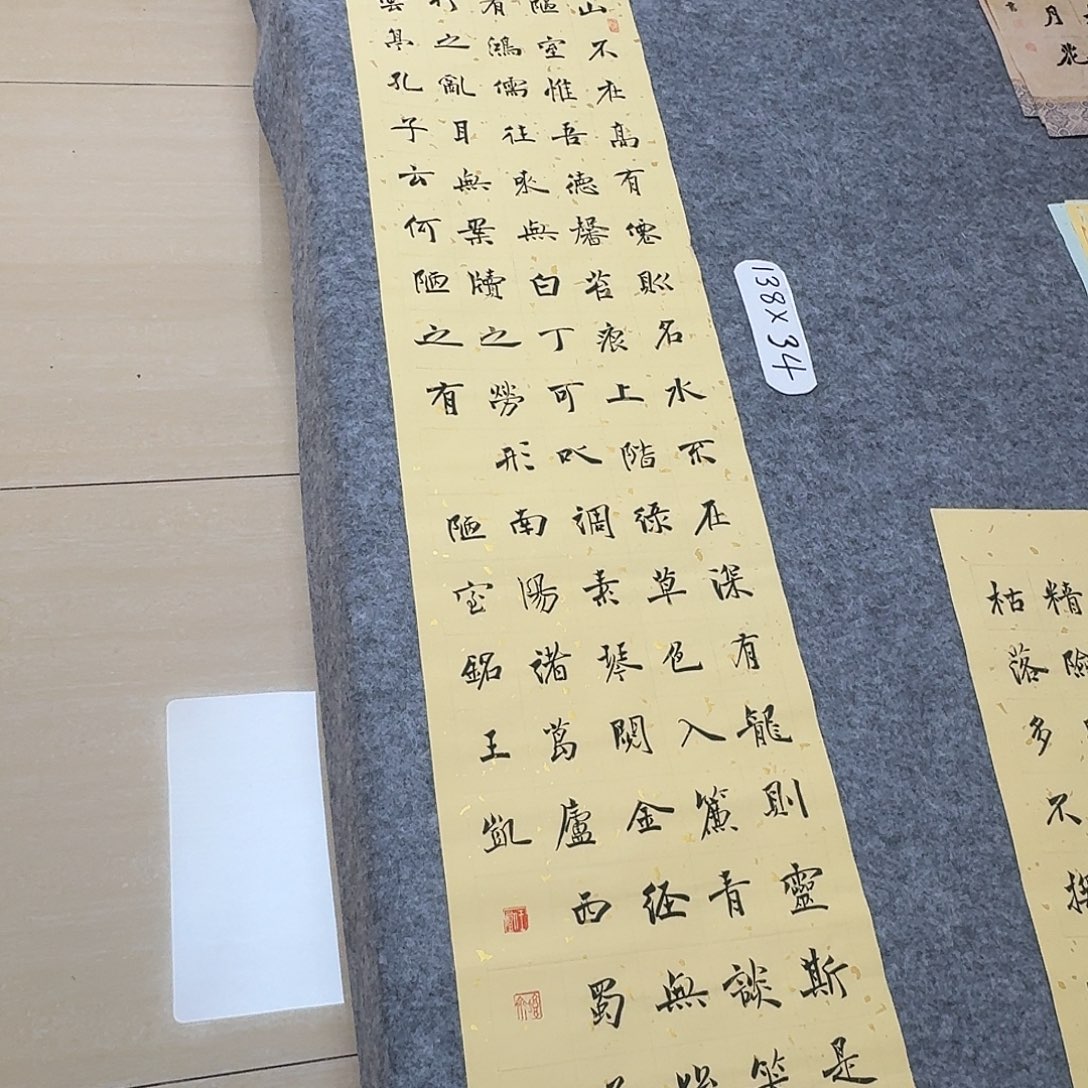 山不在高有僊則名水不在深有龍則靈斯是
陋室惟吾德馨苔痕上階綠草色入簾青談笑
有鴻儒往來無白丁可以調素琴閱金經無
之亂耳無案牘之勞形南陽諸葛廬西蜀
雲亭孔子云何陋之有
陋室銘王凱
138×34
月花
精險
枯落多不